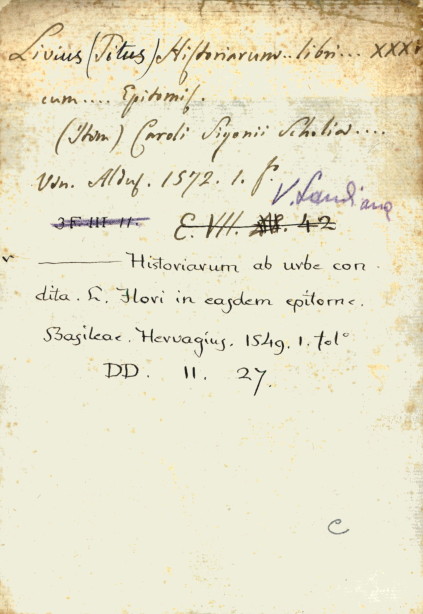 Livius (Titus) Historiarum.. libri... XXXV
cum.... Epitomis.
(Item) Caroli Sigonii Scholia....
Ven. Aldus. 1572. 1. f.
V. Landiana
3F. III. 11.
E. VII. 42
——— Historiarum ab urbe con
dita. L. Flori in easdem epitome.
Basileae. Hervagius. 1549. 1. fol°
DD. 11. 27.
C